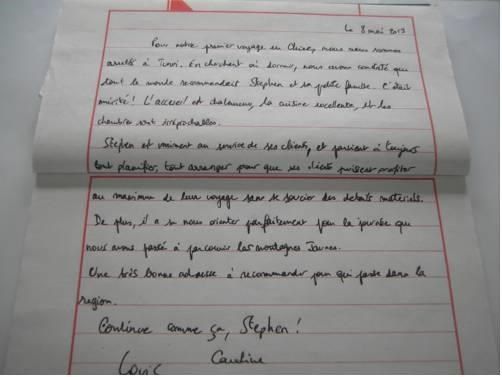 Le 8 mai 2013
Pour notre premier voyage en Chine, nous nous sommes
arrêtés à Tunxi. En cherchant où dormir, nous avons constaté que
tout le monde recommandait Stephen et sa petite famille. C'était
mérité ! L'accueil est chaleureux, la cuisine excellente, et les
chambres sont irréprochables.
Stephen est vraiment au service de ses clients, et parvient à toujours
tout planifier, tout arranger pour que ses clients puissent profiter
au maximum de leur voyage sans se soucier des détails matériels.
De plus, il a su nous orienter parfaitement pour la journée que
nous avons passé à parcourir les montagnes Jaunes.
Une très bonne adresse à recommander pour qui passe dans la
région.
Continue comme ça, Stephen !
Caroline